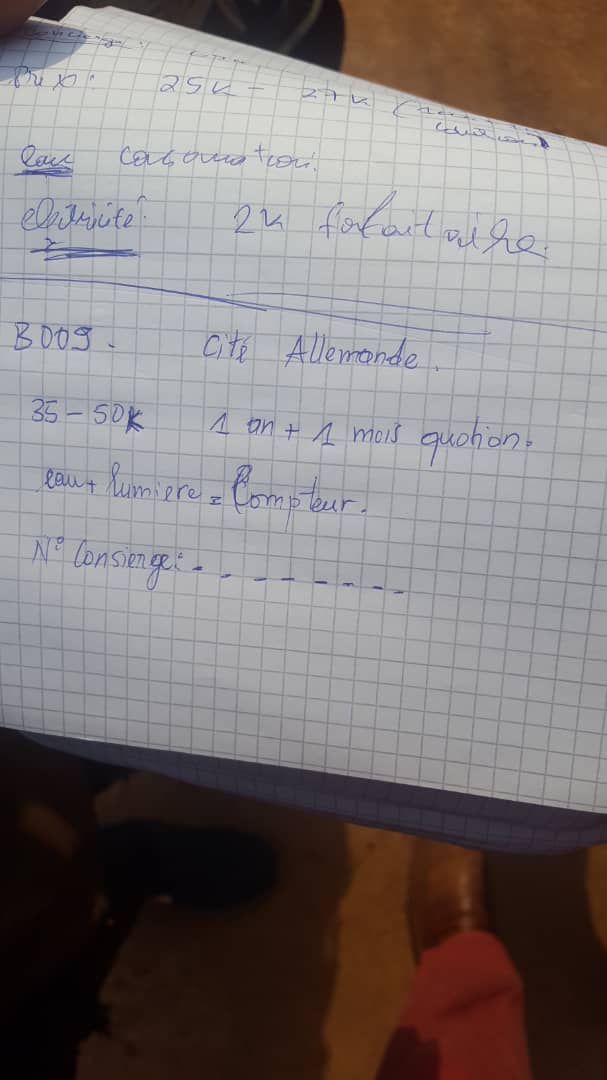 Prix: 25K - 27K (
eau consomation.
electricité: 2K forfaitaire.
B009. Cité Allemande.
35-50K 1 an + 1 mois quotion.
eau + lumiere = Compteur.
N° Consierge: - - - - - - - -